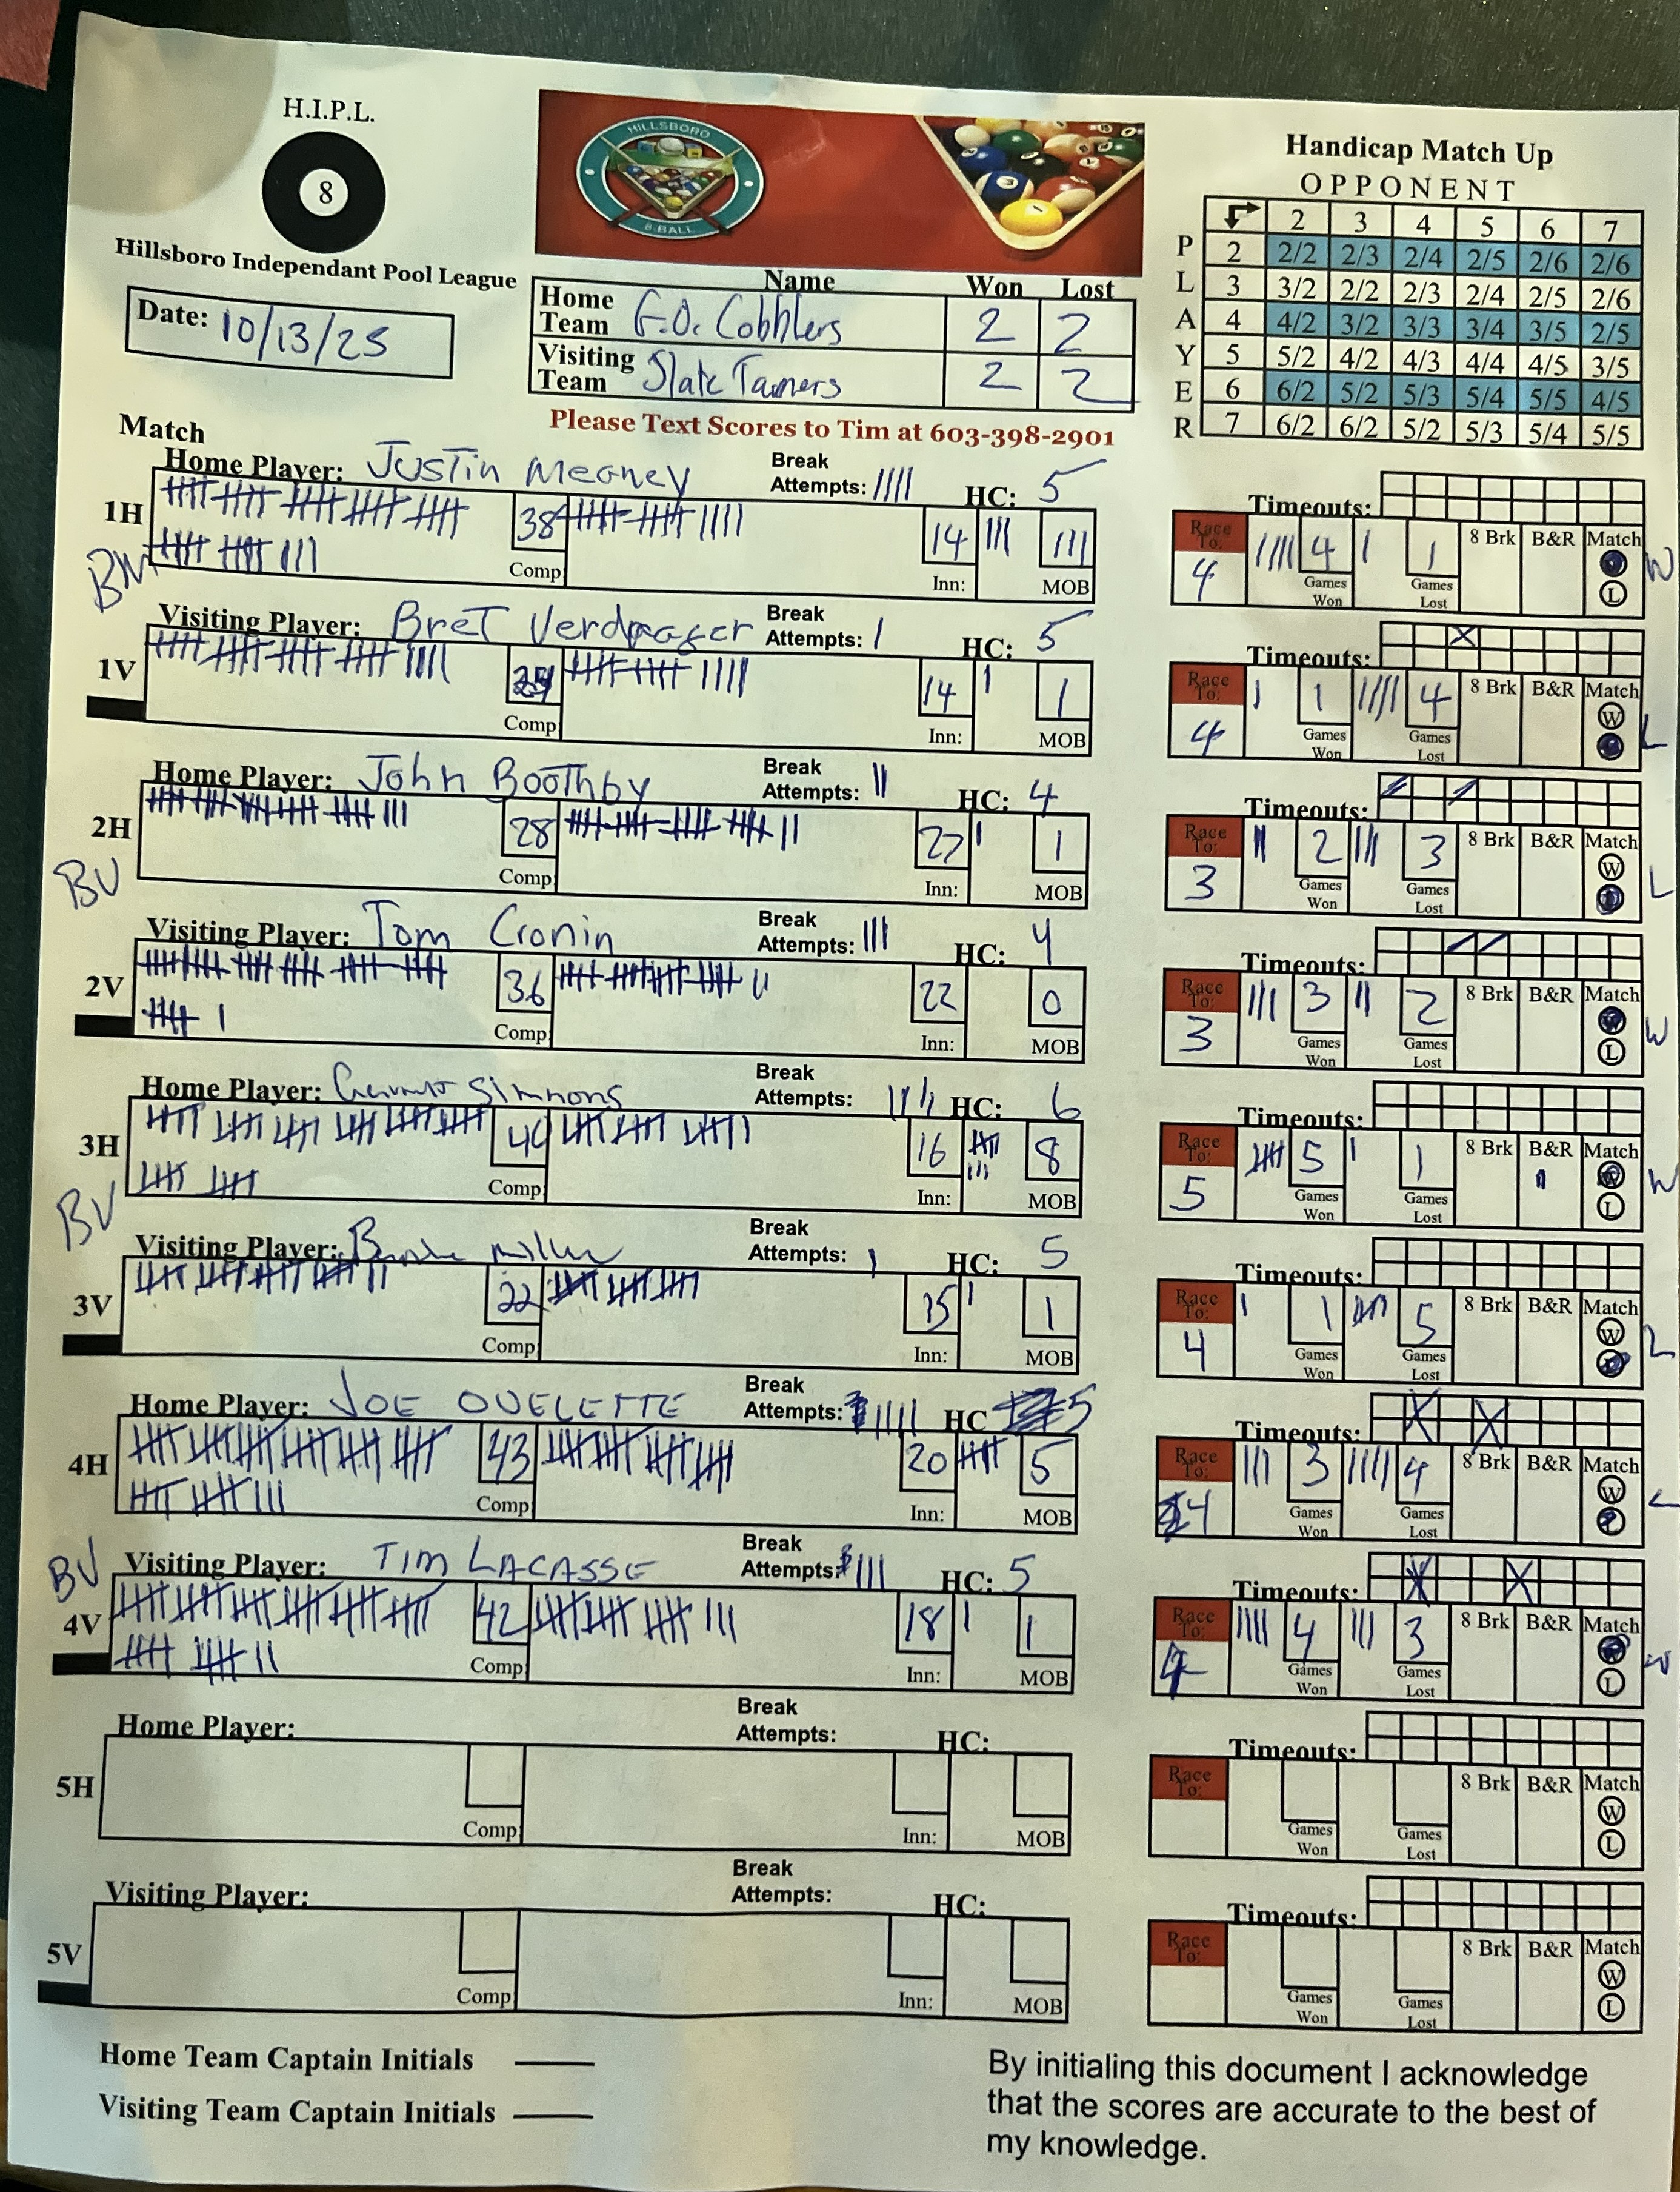 H.I.P.L.
8
Hillsboro Independant Pool League
HILLSBORO
8-BALL
Date: 10/13/25
Name Won Lost
Home Team G.O. Cobblers 2 2
Visiting Team Slate Tamers 2 2
Please Text Scores to Tim at 603-398-2901
Handicap Match Up
OPPONENT
PLAYER
2 3 4 5 6 7
2 2/2 2/3 2/4 2/5 2/6 2/6
3 3/2 2/2 2/3 2/4 2/5 2/6
4 4/2 3/2 3/3 3/4 3/5 2/5
5 5/2 4/2 4/3 4/4 4/5 3/5
6 6/2 5/2 5/3 5/4 5/5 4/5
7 6/2 6/2 5/2 5/3 5/4 5/5
Match
Home Player: Justin Meaney Break Attempts: |||| HC: 5 Timeouts:
1H 38 Comp 14 Inn: ||| ||| MOB Race To: 4 |||| 4 Games Won | 1 Games Lost 8 Brk B&R Match L W
Visiting Player: Bret Break Attempts: | HC: 5 Timeouts:
1V 24 Comp 14 Inn: | 1 MOB Race To: 4 | 1 Games Won |||| 4 Games Lost 8 Brk B&R Match W L
Home Player: John Boothby Break Attempts: || HC: 4 Timeouts:
2H 28 Comp 22 Inn: | 1 MOB Race To: 3 || 2 Games Won ||| 3 Games Lost 8 Brk B&R Match W L
BV
Visiting Player: Tom Cronin Break Attempts: ||| HC: 4 Timeouts:
2V 36 Comp 22 Inn: 0 MOB Race To: 3 ||| 3 Games Won || 2 Games Lost 8 Brk B&R Match L W
Home Player: Simmons Break Attempts: |||| HC: 6 Timeouts:
3H 40 Comp 16 Inn: 8 MOB Race To: 5 5 Games Won | 1 Games Lost 8 Brk B&R | Match L W
BV
Visiting Player: Miller Break Attempts: | HC: 5 Timeouts:
3V 22 Comp 15 Inn: | 1 MOB Race To: 4 | 1 Games Won 5 Games Lost 8 Brk B&R Match W L
Home Player: JOE OUELETTE Break Attempts: ||||| HC 5 Timeouts:
4H 43 Comp 20 Inn: 5 MOB Race To: 4 ||| 3 Games Won |||| 4 Games Lost 8 Brk B&R Match W L
BV
Visiting Player: TIM LACASSE Break Attempts: ||| HC: 5 Timeouts:
4V 42 Comp 18 Inn: | 1 MOB Race To: 4 |||| 4 Games Won ||| 3 Games Lost 8 Brk B&R Match L W
Home Player: Break Attempts: HC: Timeouts:
5H Comp Inn: MOB Race To: Games Won Games Lost 8 Brk B&R Match W L
Visiting Player: Break Attempts: HC: Timeouts:
5V Comp Inn: MOB Race To: Games Won Games Lost 8 Brk B&R Match W L
Home Team Captain Initials
Visiting Team Captain Initials
By initialing this document I acknowledge
that the scores are accurate to the best of
my knowledge.